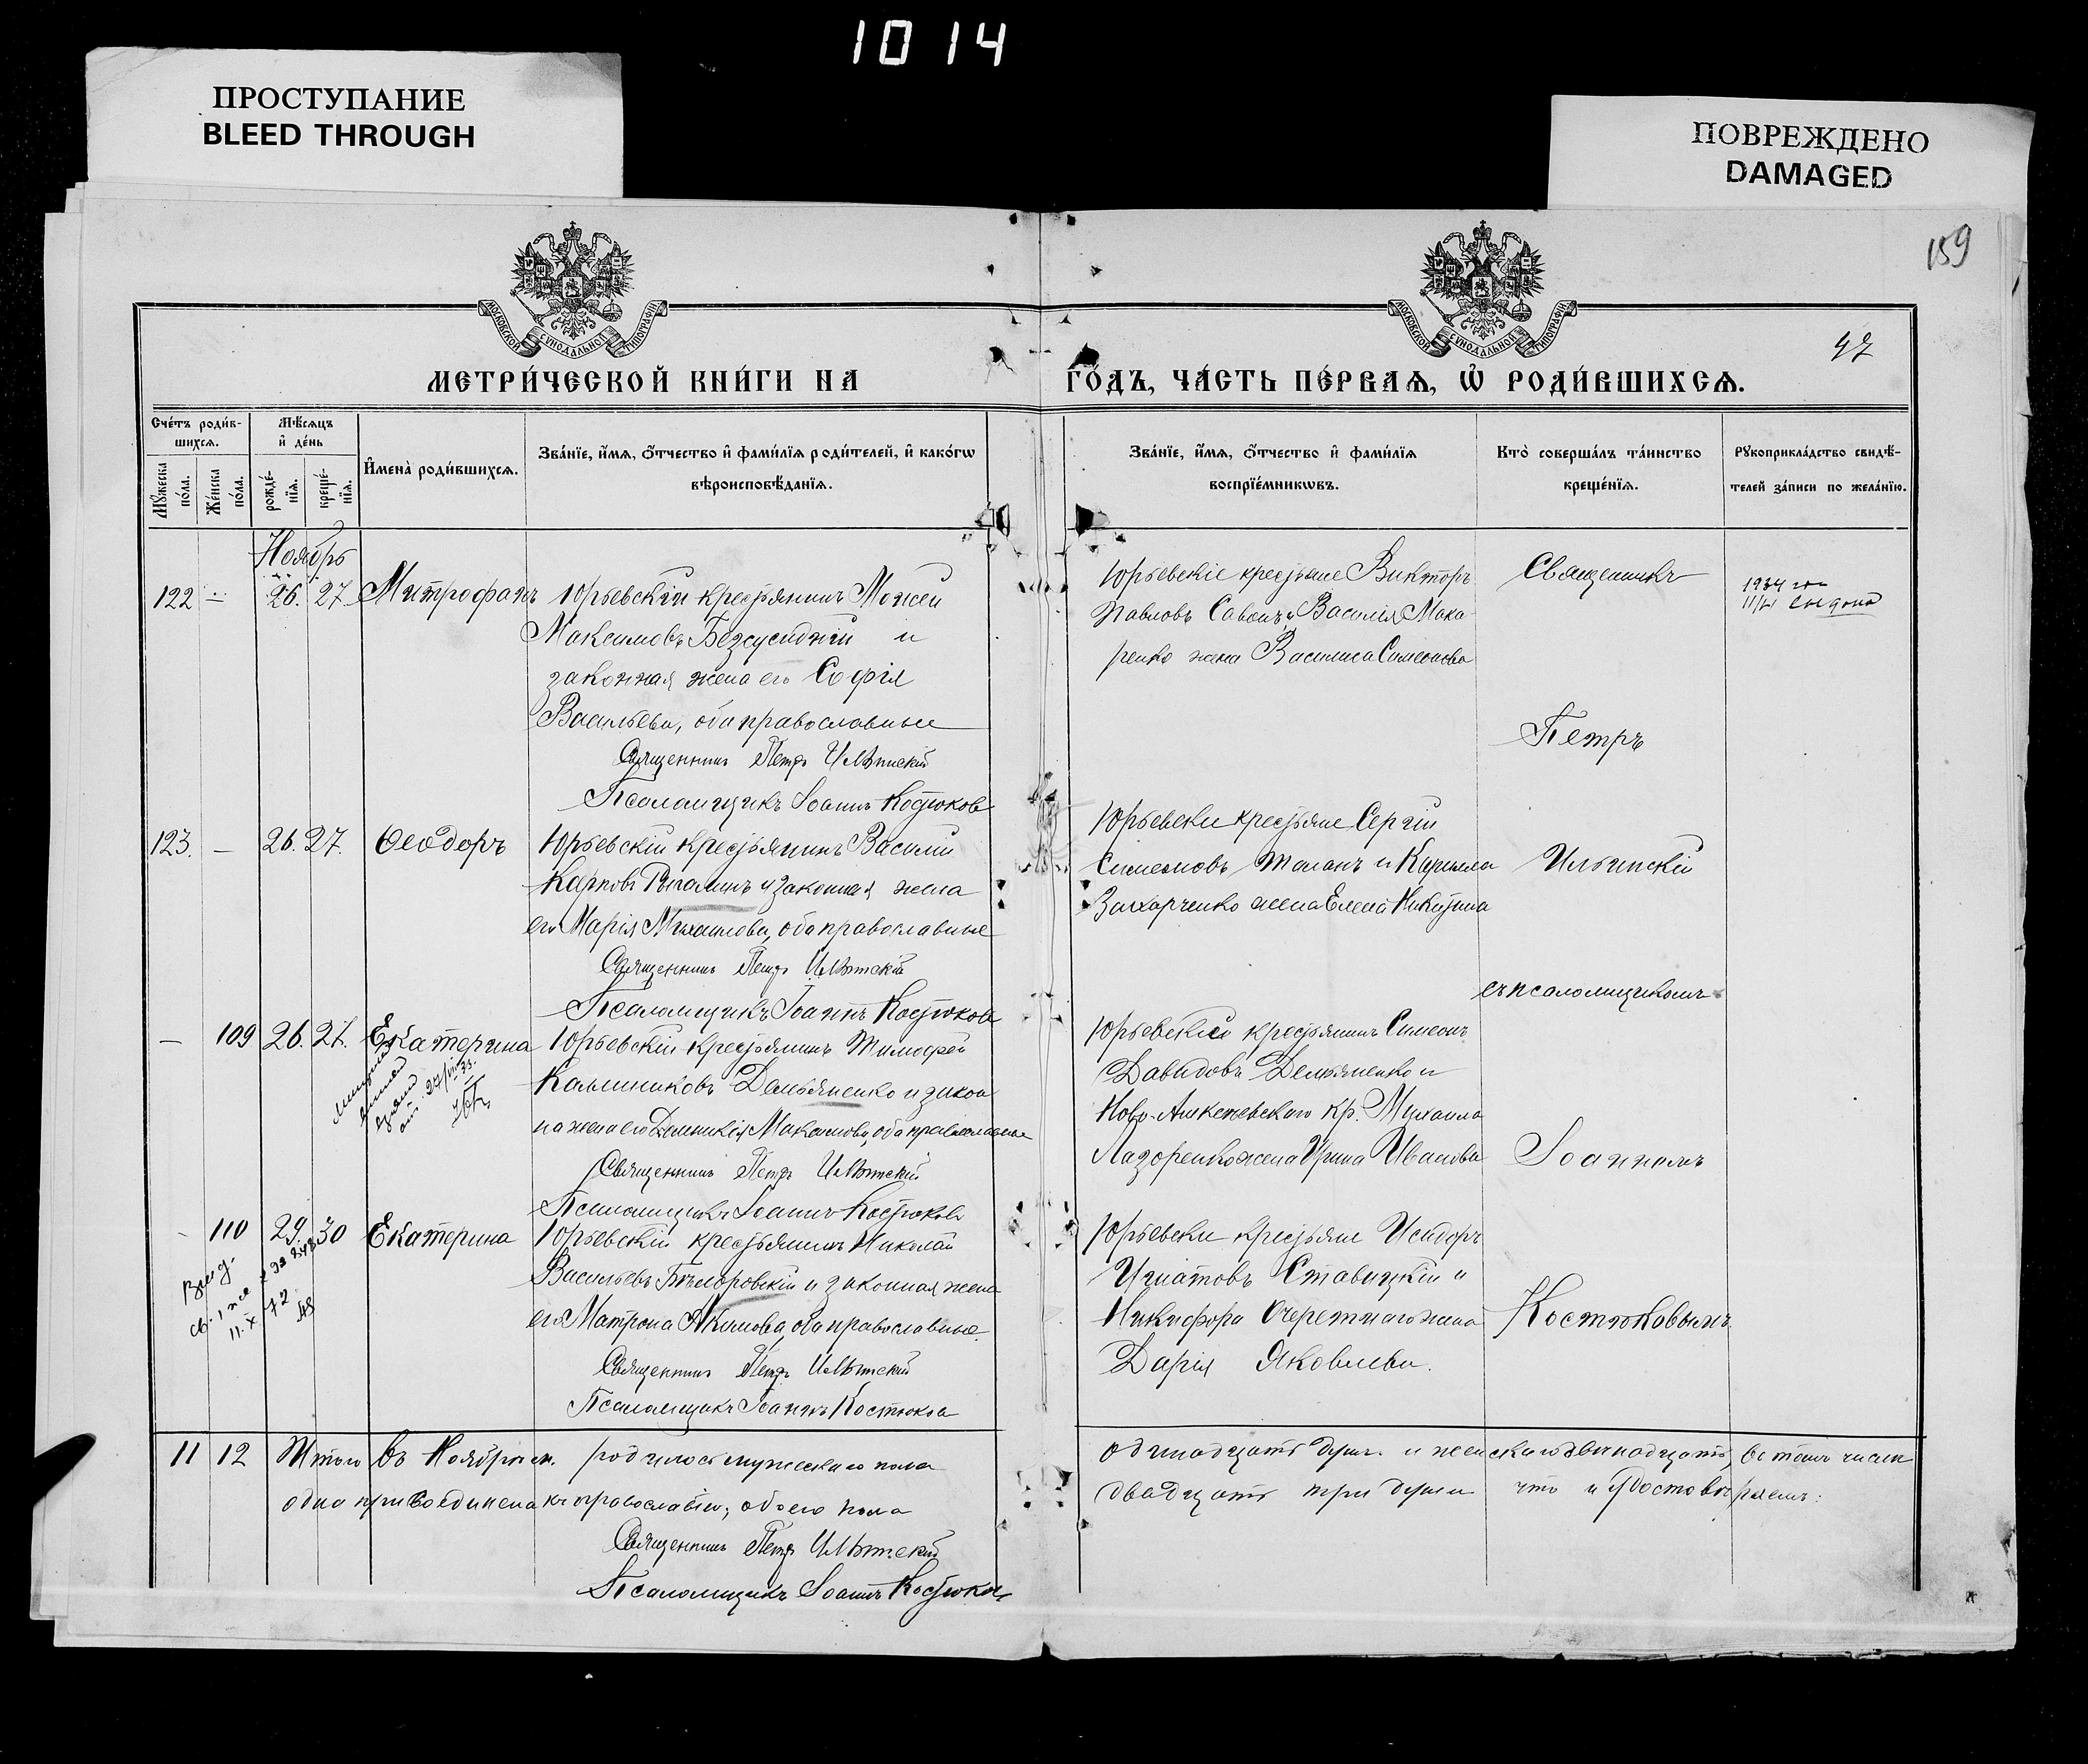 1014
ПРОСТУПАНИЕ
BLEED THROUGH
ПОВРЕЖДЕНО
DAMAGED
159
МОСКОВСКОЙ СУНОДАЛЬНОЙ ТИПОГРАФІИ
МОСКОВСКОЙ СУНОДАЛЬНОЙ ТИПОГРАФІИ
47
МЕТРИ́ЧЕСКОЙ КНИ́ГИ НА
ГО́ДЪ, ЧА́СТЬ ПЕ́РВАѦ, Ѡ҆ РОДИ́ВШИХСѦ.
Сче́тъ роди́в-
шихсѧ.
Мꙋ́жеска
по́ла.
Же́нска
по́ла.
Мѣ́сѧцъ
и҆ де́нь
рожде́-
нїѧ.
креще́-
нїѧ.
И҆мена̀ роди́вшихсѧ.
Зва́нїе, и҆́мѧ, ѻ҆́тчество и҆ фами́лїѧ роди́телей, и҆ како́гѡ
вѣроисповѣ́данїѧ.
Зва́нїе, и҆́мѧ, ѻ҆́тчество и҆ фами́лїѧ
воспрїе́мникѡвъ.
Кто̀ соверша́лъ та́инство
креще́нїѧ.
Рꙋкоприкла́дство свидѣ́-
телей за́писи по жела́нїю.
Ноябрь
122 — 26. 27. Митрофанъ
Юрьевскій крестьянинъ Моисей
Максимовъ Безсусидній и
законная жена его Софія
Васильева, оба православные
Священникъ Петръ Ильинскій
Псаломщикъ Іоаннъ Костюковъ
Юрьевскіе крестьяне Викторъ
Павловъ Савонъ и Василія Мака-
ренко жена Василиса Симеонова
Священникъ
Петръ
1934
123. — 26. 27. Ѳеодоръ
Юрьевскій крестьянинъ Василій
Карповъ и законная жена
его Марія Михаилова, оба православные
Священникъ Петръ Ильинскій
Псаломщикъ Іоаннъ Костюковъ
Юрьевскіе крестьяне Сергій
Симеоновъ Таланъ и Кирилла
Захарченко жена Елена Никитина
Ильинскій
съ псаломщикомъ
— 109 26. 27. Екатерина
Юрьевскій крестьянинъ Тимофей
Калинниковъ Демьяненко и закон
на жена его Домникія Максимова оба православные
Священникъ Петръ Ильинскій
Псаломщикъ Іоаннъ Костюковъ
Юрьевскій крестьянинъ Симеонъ
Давидовъ Демьяненко и
Ново- кр. Михаила
Лазоренко жена Ирина Иванова
Іоанномъ
- 110 29. 30 Екатерина
Юрьевскій крестьянинъ Николай
Васильевъ и законная жена
его Матрона Акимова, оба православные
Священникъ Петръ Ильинскій
Псаломщикъ Іоаннъ Костюковъ
Юрьевскіе крестьяне Исидоръ
Игнатовъ Ставицкій и
Никифора Очеретнаго жена
Дарія Яковлева.
Костюковымъ
11 12 Итого въ Ноябрѣ м. родилось мужескаго пола
одиннадцать душъ и женскаго двѣнадцать, въ томъ числѣ
одна присоединена къ православію; обоего пола
двадцать три души что и удостовѣряемъ:
Священникъ Петръ Ильинскій
Псаломщикъ Іоаннъ Костюковъ